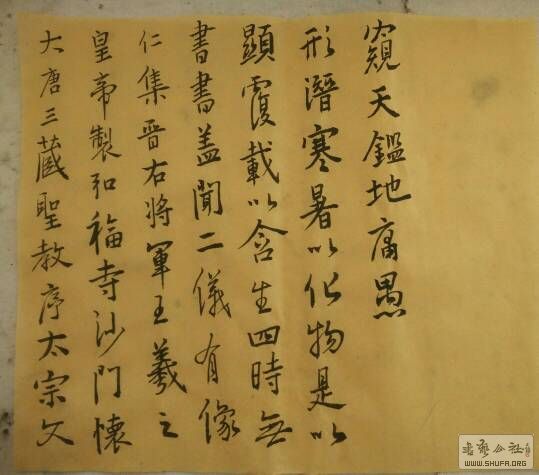 大唐三藏聖教序太宗文
皇帝製弘福寺沙門懷
仁集晉右將軍王羲之
書書蓋聞二儀有像
顯覆載以含生四時無
形潛寒暑以化物是以
窺天鑑地庸愚
书艺公社
WWW.SHUFA.ORG